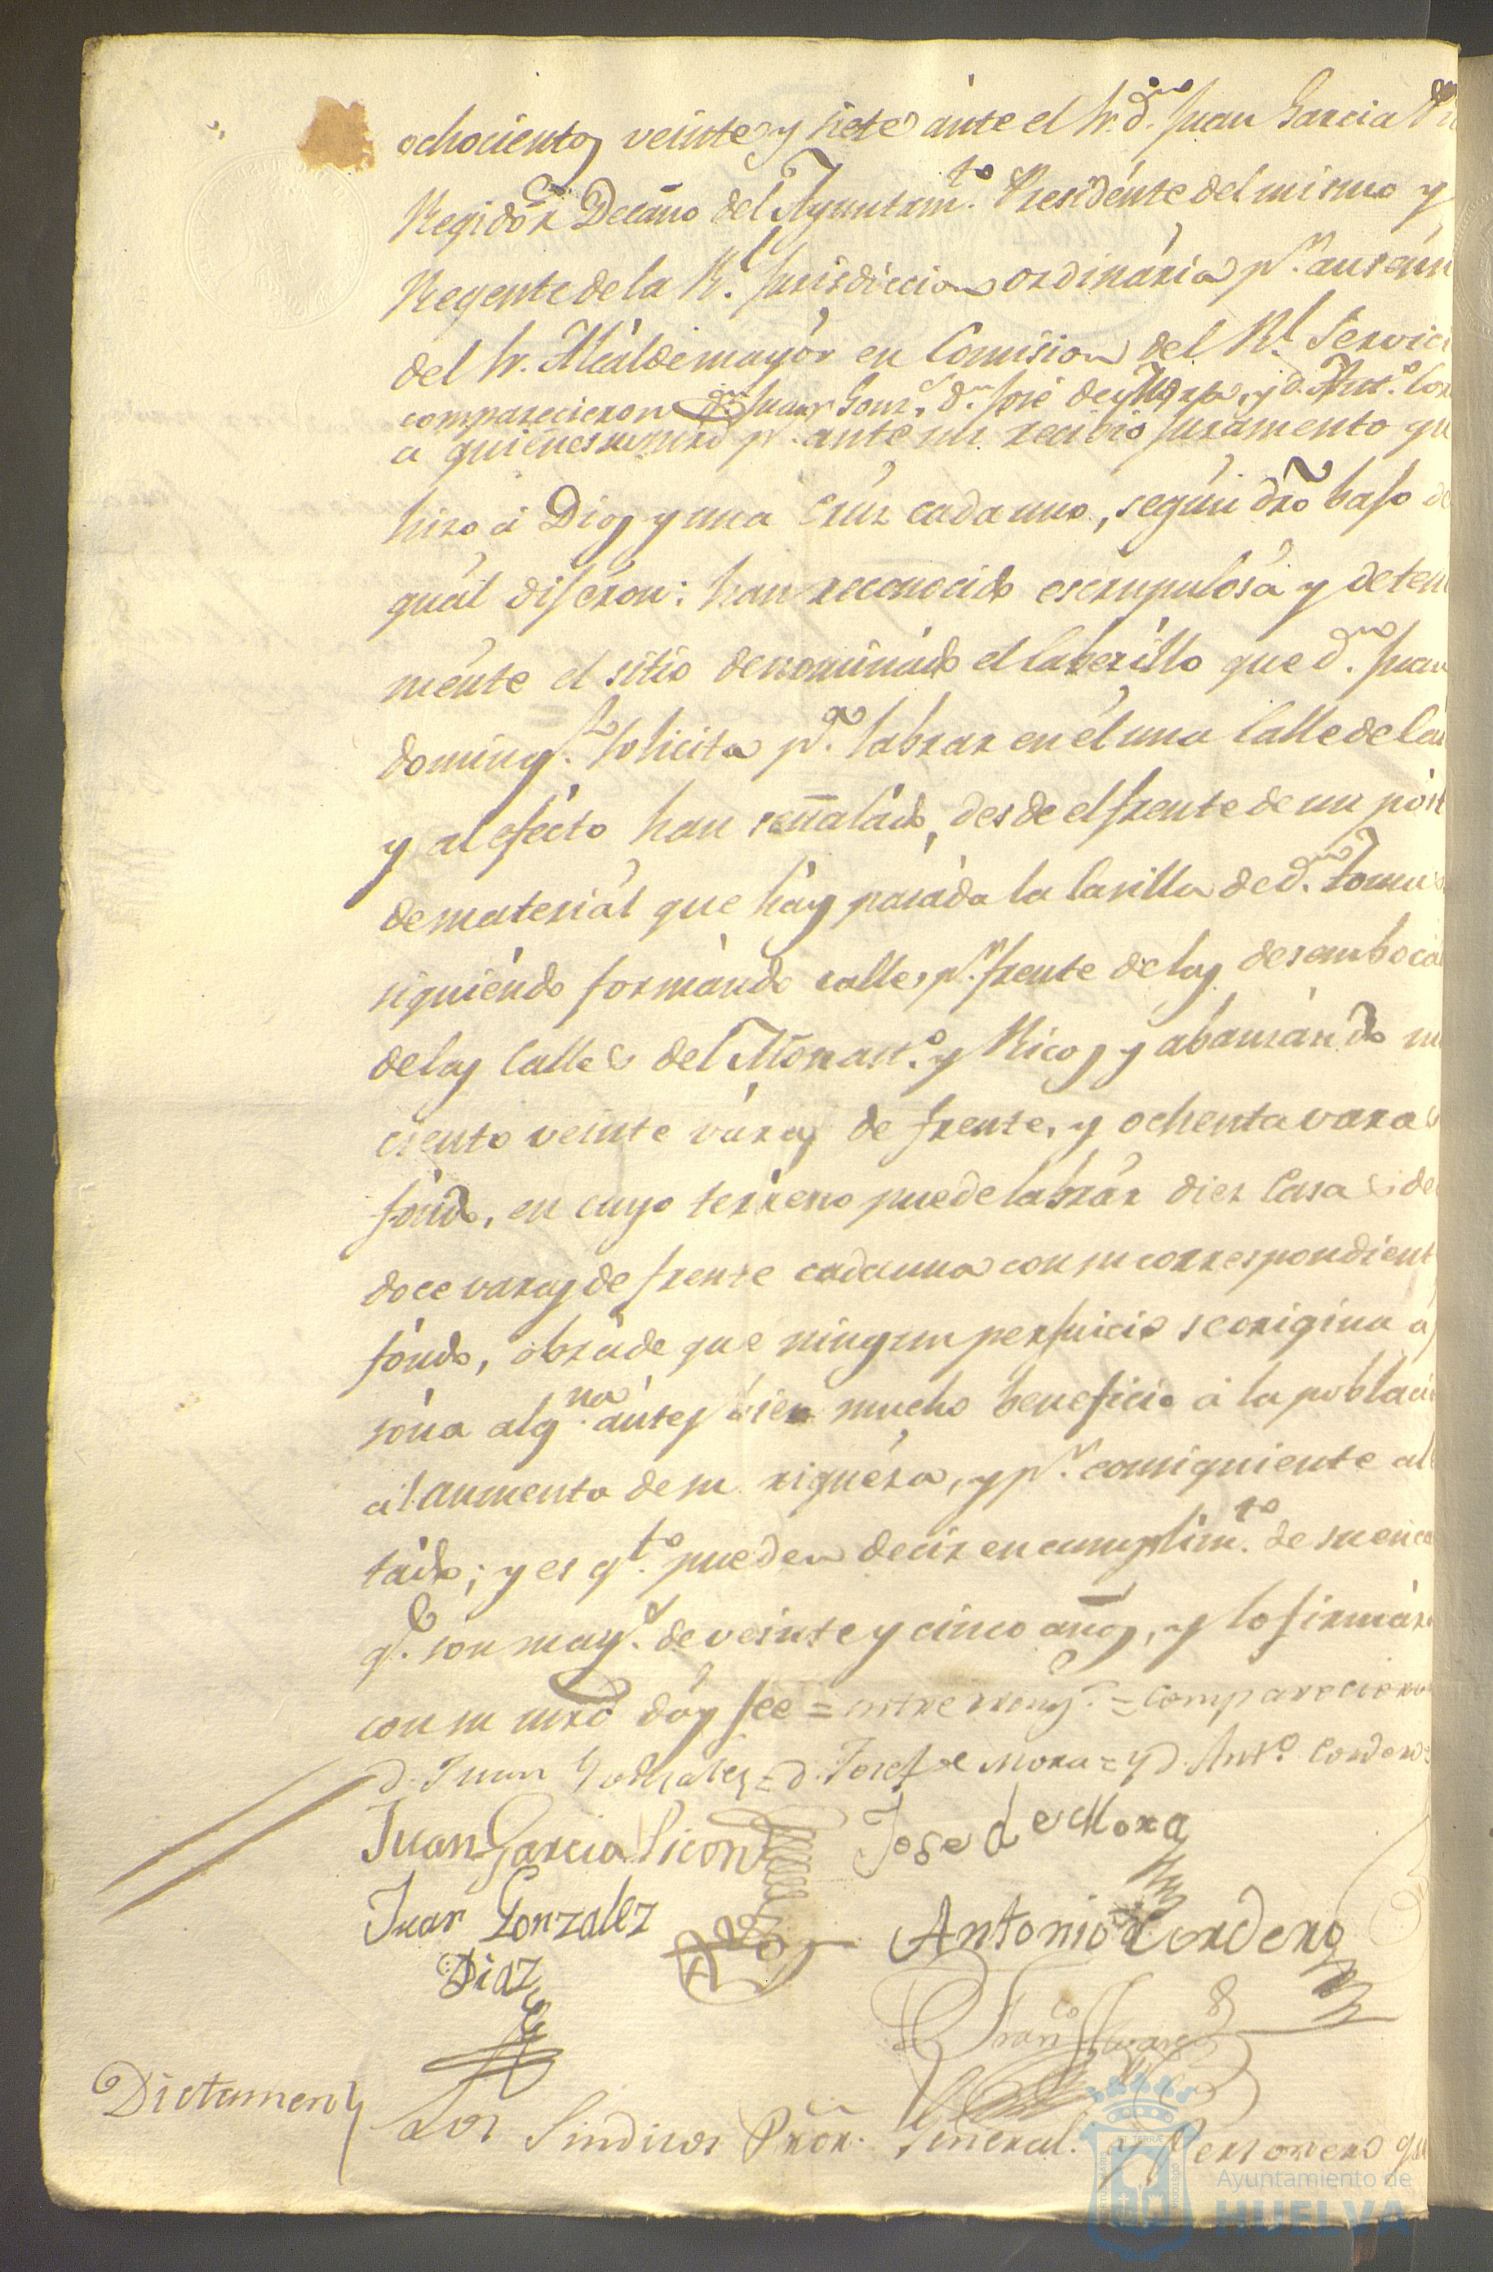 ochocientos veinte y siete ante el Sr. Dn. Juan Garcia
Regidor Decano del Ayuntamto. Presidente del mismo y
Regente de la Rl. Jurisdiccion ordinaria pr. ausen
del Sr. Alcalde mayor en Comision del Rl. Servici
comparecieron Dn. Juan Gonz. Dn. José de Mora, y d. Anto. Cor
a quienes su mrd pr. ante mi recibió Juramento qu
hizo á Dios y una Cruz cada uno, según dro bajo de
quál dijéron: han reconocido escrupulosa y deten
mente el sitio denominado el laberillo que dn. Juan
doming.z solicita pa. labrar en él una Calle de Ca
y al efecto han señalado, desde el frente de un pos
de material que háy pasáda la Casilla de dn. Tomas
siguiéndo formándo calle pr. frente de las desemboca
de las Calles del Monasto. y Ricos y abanzándo
ciento veinte váras de frente, y ochenta varas
fóndo, en cuyo terreno puede labrár diez Casas de
doce varas de frente cada una con su correspondient
fóndo, óbra de que ningun perjuicio se origina á p
sóna algna. ántes bien mucho beneficio á la poblaci
al aumento de su riquéza, y pr. consiguiente al
tádo; y es qto. pueden decir en cumplimto. de su enca
qe. son mays. de veinte y cinco años, y lo firmár
con su mrd dóy fee = entre rrengs. = comparecieron
d. Juan Gonzalez = d. Josef de Mora = y d. Anto. Cordero =
Juan Garcia Picon Jose de Mora
Juan Gonzalez Antonio Cordero
Diaz
Franco.
Dictamen Los Sindicos Pror. General. y Personero qu
Ayuntamiento de
HUELVA